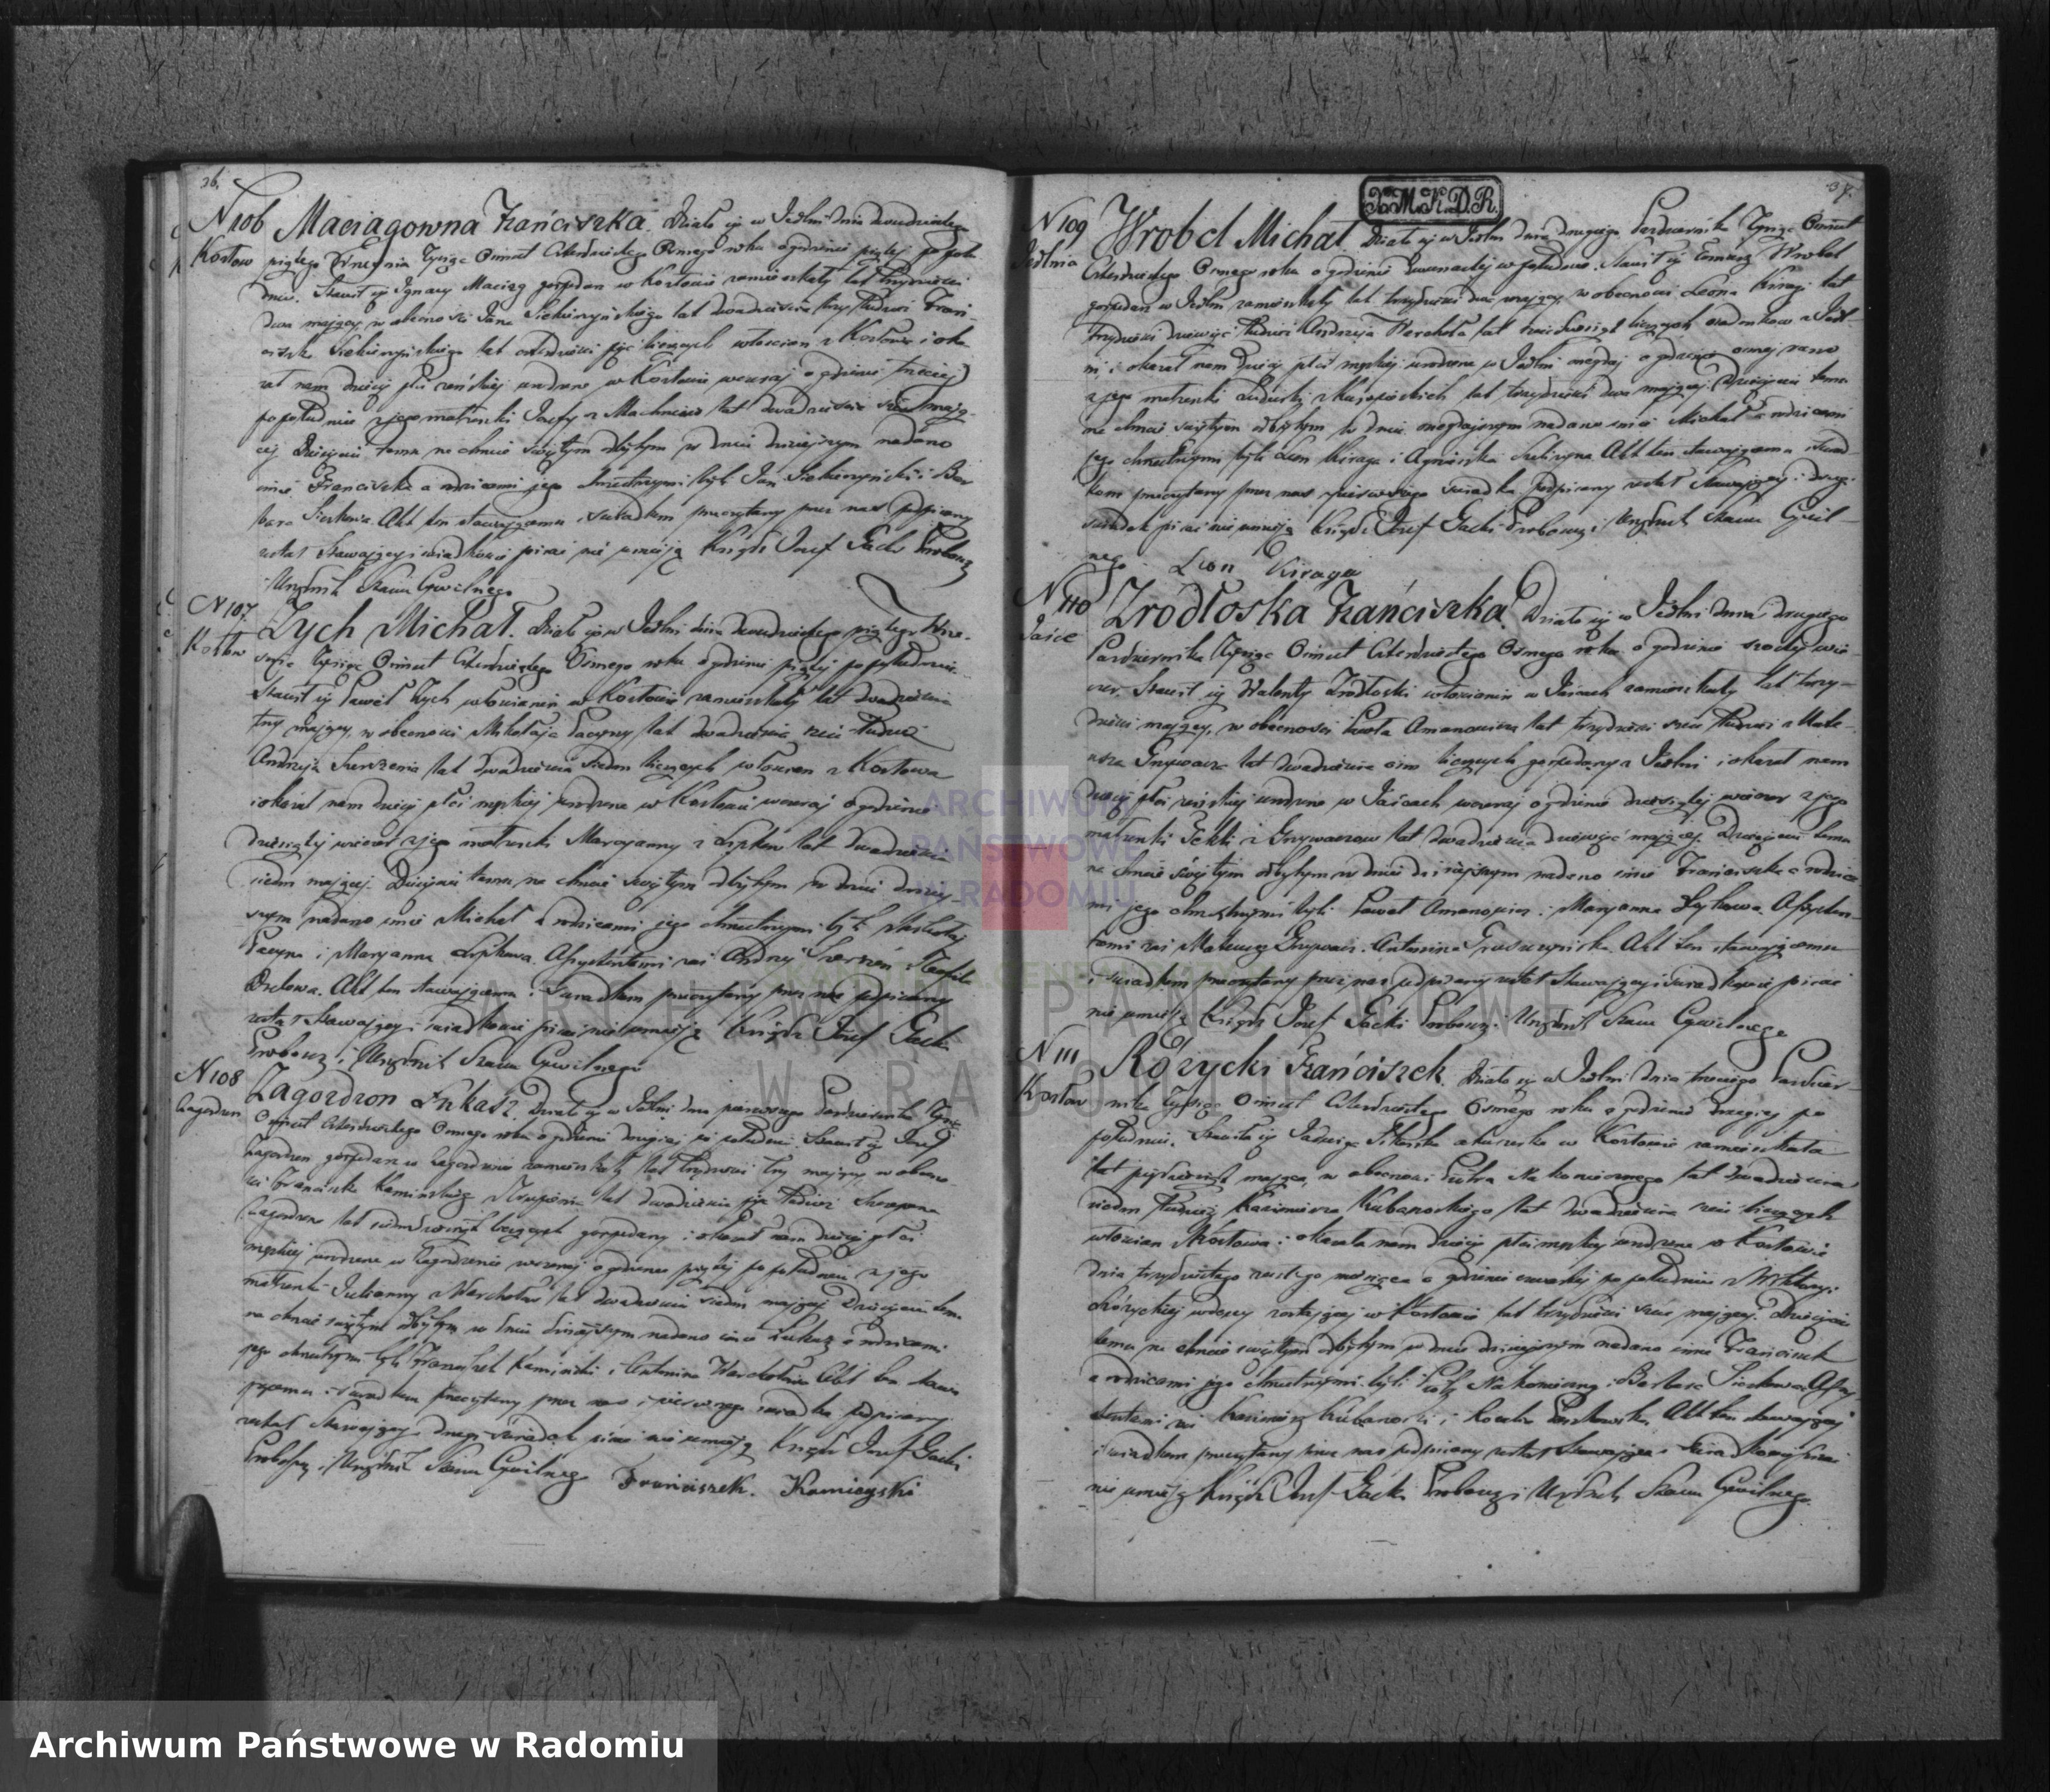 36.
N 106 Maciągowna Franciszka. Działo się w Jedlni dnia dwudziestego
Kozłow piątego Września Tysiąc Ośmset Czterdziestego Osmego roku o godzinie piątej po połu-
dniu. Stawił się Ignacy Maciąg gospodarz w Kozłowie zamieszkały lat trzydzieści
dwa mający, w obecności Jana Siekierzyńskiego lat dwadzieścia trzy tudzież Fran-
ciszka Siekierzyńskiego lat czterdzieści pięć liczących włościan z Kozłowa i oka-
zał nam dziecię płci żeńskiej urodzone w Kozłowie wczoraj o godzinie trzeciej
po południu z jego małżonki Józefy z lat dwadzieścia mają-
cej Dziecięciu temu na chrzcie świętym odbytym w dniu dzisiejszym nadano
imię Franciszka a rodzicami jego chrzestnymi byli Jan Siekierzyński i Bar-
bara Siczkowa. Akt ten stawającemu i świadkom przeczytany przez nas podpisany
został Stawający i świadkowie pisać nie umieją Ksiądz Jozef Gacki Proboszcz
Urzędnik Stanu Cywilnego
N 107. Zych Michał. Działo się w Jedlni dnia dwudziestego piątego Wrze-
Kozłow śnia Tysiąc Ośmset Czterdziestego Osmego roku o godzinie piątej po południu.
Stawił się Paweł Zych włościanin w Kozłowie zamieszkały lat dwadzieścia
trzy mający, w obecności Mikołaja Pacyny lat dwadzieścia sześć tudzież
Andrzeja Szerszenia lat dwadzieścia siedm liczących włościan z Kozłowa
i okazał nam dziecię płci męskiej urodzone w Kozłowie wczoraj o godzinie
dziesiątej wieczor z jego małżonki Maryanny z Lipków lat dwadzieścia
siedm mającej. Dziecięciu temu na chrzcie świętym odbytym w dniu dzisiej-
szym nadano imię Michał a rodzicami jego chrzestnymi byli Mikołaj
Pacyna i Maryanna Lipkowa. Asystentami zaś Andrzej Szerszeń i
Akt ten stawającemu i świadkom przeczytany przez nas podpisany
został Stawający i świadkowie pisać nie umieją Ksiądz Jozef Gacki
Proboszcz i Urzędnik Stanu Cywilnego
N 108 Zagozdzon Łukasz. Działo się w Jedlni dnia pierwszego Pazdziernika Tysiąc
Zagozdzon Ośmset Czterdziestego Osmego roku o godzinie drugiej po południu. Stawił się Jozef
Zagozdzon gospodarz w Zagozdzonie zamieszkały lat trzydzieści trzy mający, w obecno-
ści Franciszka Kaminskiego lat dwadzieścia pięć tudzież Szczepana
Zagozdzona lat liczących gospodarzy i okazał nam dziecię płci
męskiej urodzone w Zagozdzonie wczoraj o godzinie piątej po południu z jego
małżonki Julianny z Warchołów lat dwadzieścia siedm mającej Dziecięciu temu
na chrzcie świętym odbytym w dniu dzisiejszym nadano imię Łukasz a rodzicami
jego chrzestnymi byli Franciszek Kamiński i Antonina Warchołowa Akt ten stawa-
jącemu i świadkom przeczytany przez nas i pierwszego świadka podpisany
został Stawający i drugi świadek pisać nie umieją Ksiądz Jozef Gacki
Proboszcz i Urzędnik Stanu Cywilnego Franciszek. Kamieyski
X.M.K.D.R.
37.
N 109 Wrobel Michał. Działo się w Jedlni dnia drugiego Pazdziernika Tysiąc Ośmset
Jedlnia Czterdziestego Osmego roku o godzinie dwunastej w południe. Stawił się Tomasz Wrobel
gospodarz w Jedlni zamieszkały lat trzydzieści dwa mający, w obecności Leona Kiragi lat
trzydzieści dziewięć tudzież Andrzeja Warchoła lat liczących świadkow z Jedl-
ni, i okazał nam dziecię płci męskiej urodzone w Jedlni onegdaj o godzinie osmej rano
z jego małżonki Ludwiki lat trzydzieści dwa mającej. Dziecięciu temu
na chrzcie świętym odbytym w dniu onegdajszym nadano imię Michał a rodzicami
jego chrzestnymi byli Leon Kiraga i Agnieszka Akt ten stawającemu i świad-
kom przeczytany przez nas i pierwszego świadka podpisany został Stawający i drugi
świadek pisać nie umieją Ksiądz Jozef Gacki Proboszcz i Urzędnik Stanu Cywil-
nego. Leon Kiraga
N 110 Zrodłoska Franciszka. Działo się w Jedlni dnia drugiego
Jaśce Pazdziernika Tysiąc Ośmset Czterdziestego Osmego roku o godzinie szostej wie-
czor. Stawił się Walenty Zrodłoski włościanin w Jaścach zamieszkały lat trzy-
dzieści mający, w obecności Pawła Amanowicza lat trzydzieści sześć tudzież Mate-
usza Grzywacza lat dwadzieścia osm liczących gospodarzy z Jedlni i okazał nam
dziecię płci żeńskiej urodzone w Jaścach wczoraj o godzinie dziesiątej wieczor z jego
małżonki Tekli z Grzywaczow lat dwadzieścia dziewięć mającej. Dziecięciu temu
na chrzcie świętym odbytym w dniu dzisiejszym nadano imię Franciszka a rodzica-
mi jego chrzestnymi byli Paweł Amanowicz i Maryanna Zychowa. Asysten-
tami zaś Mateusz Grzywacz i Antonina Akt ten stawającemu
i świadkom przeczytany przez nas podpisany został Stawający i świadkowie pisać
nie umieją Ksiądz Jozef Gacki Proboszcz i Urzędnik Stanu Cywilnego
N 111 Rożycki Franciszek. Działo się w Jedlni dnia trzeciego Pazdzier-
Kozłow nika Tysiąc Ośmset Czterdziestego Osmego roku o godzinie drugiej po
południu. Stawiła się Jadwiga Sikorska akuszerka w Kozłowie zamieszkała
lat pięćdziesiąt mająca, w obecności Piotra Nakoniecznego lat dwadzieścia
siedm tudzież Kazimierza Kubanoskiego lat dwadzieścia sześć liczących
włościan z Kozłowa i okazała nam dziecię płci męskiej urodzone w Kozłowie
dnia trzydziestego zeszłego miesiąca o godzinie czwartej po południu z Wiktoryi
Rożyckiej wdowy zostającej w Kozłowie lat trzydzieści sześć mającej. Dziecięciu
temu na chrzcie świętym odbytym w dniu dzisiejszym nadano imię Franciszek
a rodzicami jego chrzestnymi byli Piotr Nakonieczny i Barbara Siczkowa Asy-
stentami zaś Kazimierz Kubanoski i Akt ten stawającej
i świadkom przeczytany przez nas podpisany został Stawająca i świadkowie pisać
nie umieją Ksiądz Jozef Gacki Proboszcz i Urzędnik Stanu Cywilnego.
ARCHIWUM
PAŃSTWOWE
W RADOMIU
ARCHIWUM PAŃSTWOWE
W RADOMIU
Archiwum Państwowe w Radomiu